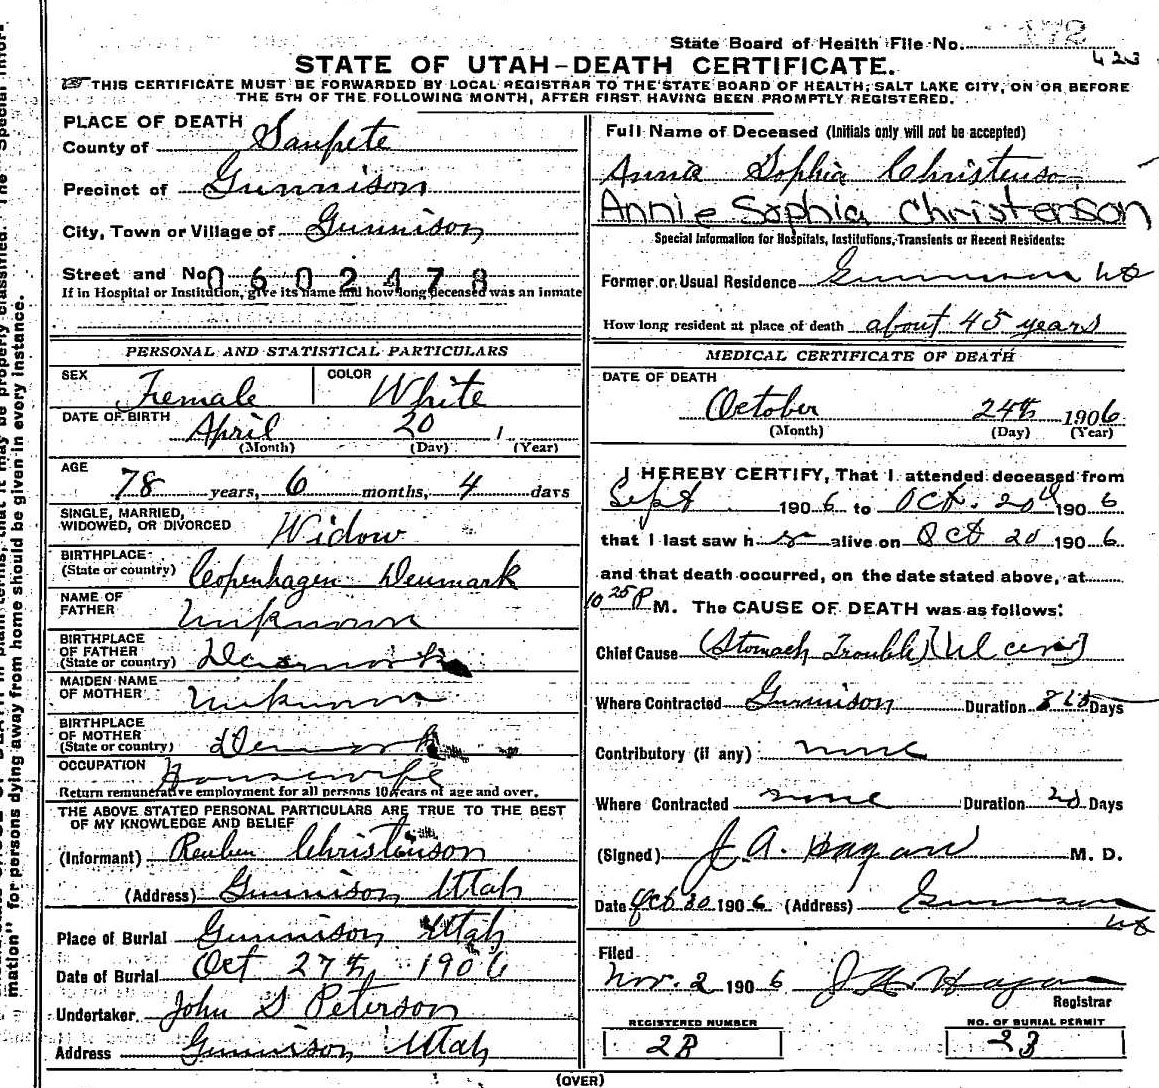 State Board of Health File No. 172
423
STATE OF UTAH–DEATH CERTIFICATE.
THIS CERTIFICATE MUST BE FORWARDED BY LOCAL REGISTRAR TO THE STATE BOARD OF HEALTH, SALT LAKE CITY, ON OR BEFORE
THE 5TH OF THE FOLLOWING MONTH, AFTER FIRST HAVING BEEN PROMPTLY REGISTERED.
PLACE OF DEATH
County of Sanpete
Precinct of Gunnison
City, Town or Village of Gunnison
Street and No. 0602478
If in Hospital or Institution, give its name and how long deceased was an inmate
PERSONAL AND STATISTICAL PARTICULARS
SEX Female COLOR White
DATE OF BIRTH April 20 1
(Month) (Day) (Year)
AGE 78 years, 6 months, 4 days
SINGLE, MARRIED, WIDOWED, OR DIVORCED Widow
BIRTHPLACE (State or country) Copenhagen Denmark
NAME OF FATHER Unknown
BIRTHPLACE OF FATHER (State or country) Denmark
MAIDEN NAME OF MOTHER Unknown
BIRTHPLACE OF MOTHER (State or country) Denmark
OCCUPATION Housewife
Return remunerative employment for all persons 10 years of age and over.
THE ABOVE STATED PERSONAL PARTICULARS ARE TRUE TO THE BEST
OF MY KNOWLEDGE AND BELIEF
(Informant) Reuben Christenson
(Address) Gunnison Utah
Place of Burial Gunnison Utah
Date of Burial Oct 27th, 1906
Undertaker John S Peterson
Address Gunnison Utah
Full Name of Deceased (Initials only will not be accepted)
Annia Sophia Christenson
Annie Sophia Christenson
Special Information for Hospitals, Institutions, Transients or Recent Residents:
Former or Usual Residence Gunnison Ut
How long resident at place of death about 45 years
MEDICAL CERTIFICATE OF DEATH
DATE OF DEATH
October 24th 1906
(Month) (Day) (Year)
I HEREBY CERTIFY, That I attended deceased from
Sept 1906 to Oct. 20th 1906
that I last saw her alive on Oct 20 1906
and that death occurred, on the date stated above, at
10 25 P M. The CAUSE OF DEATH was as follows:
Chief Cause (Stomach Trouble) [Ulcers]
Where Contracted Gunnison Duration Days
Contributory (if any) none
Where Contracted none Duration 20 Days
(Signed) J. A. Hagan M. D.
Date Oct 30 1906 (Address) Gunnison
Ut
Filed
Nov. 2 1906 J A Hagan
Registrar
REGISTERED NUMBER
NO. OF BURIAL PERMIT
23
(OVER)
mation" for persons dying away from home should be given in every instance.